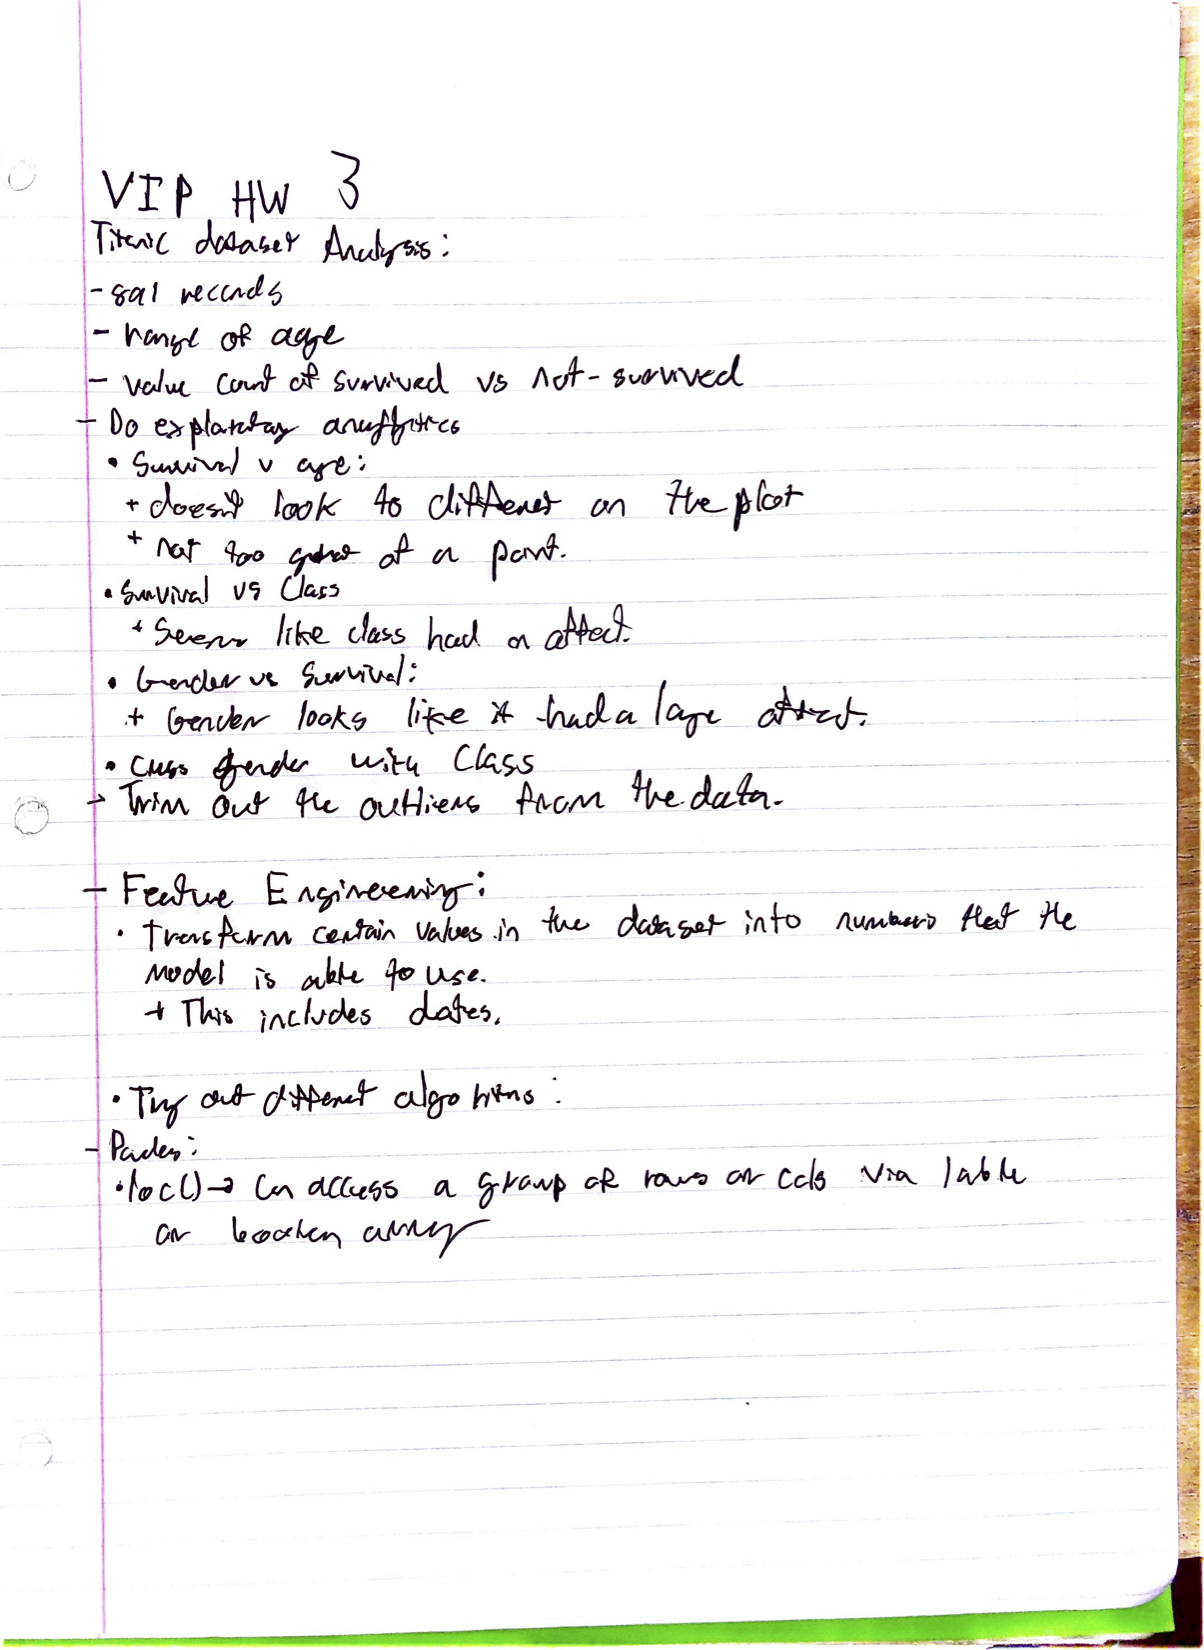 VIP HW 3
Titanic dataset Analysis:
- 891 records
- range of age
- value count of survived vs not-survived
- Do explanatory analytics
• Survival v age:
+ doesn't look to different on the plot
+ not too great of a point.
• Survival vs Class
+ Seems like class had a affect.
• Gender vs Survival:
+ Gender looks like it had a large affect.
• Cross gender with Class
- Trim out the outliers from the data.
- Feature Engineering:
• Transform certain values in the dataset into numbers that the
model is able to use.
+ This includes dates.
• Try out different algorithms:
- Pandas:
• loc() → Can access a group of rows or cols via lable
or boolean array